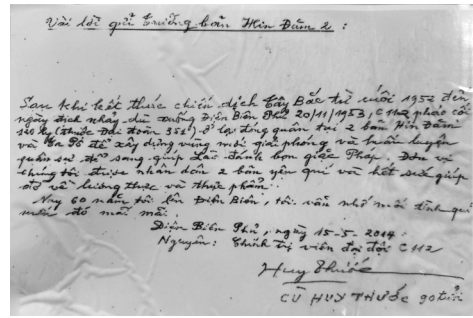 Vài lời gửi Trưởng bản Hin Đăm 2 :
Sau khi kết thúc chiến dịch Tây Bắc từ cuối 1952 đến
ngày địch nhảy dù xuống Điện Biên Phủ 20/11/1953, C112 pháo cối
120 ly (thuộc Đại đoàn 351) ở lại đóng quân tại 2 bản Hin Đăm
và để xây dựng vùng mới giải phóng và huấn luyện
quân sự để sang giúp Lào đánh bọn giặc Pháp. Đơn vị
chúng tôi được nhân dân 2 bản yêu quý và hết sức giúp
đỡ về lương thực và thực phẩm.
Nay 60 năm tôi lên Điện Biên, tôi vẫn nhớ mối tình quê
đó mãi mãi.
Điện Biên Phủ, ngày 15-5-2014.
Nguyên: Chính trị viên đại đội C112
Huy Thước
CÙ HUY THƯỚC 90 tuổi